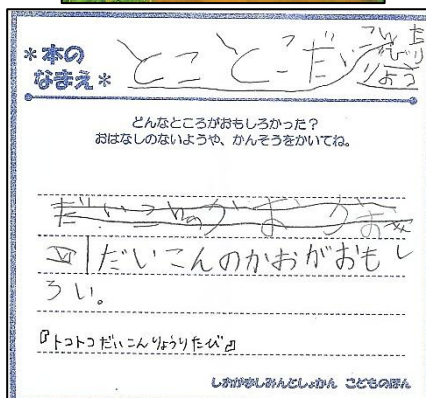 *本の
なまえ*
とことこだいこん
りょうり
たび
どんなところがおもしろかった?
おはなしのないようや、かんそうをかいてね。
だいこんのかおがおもし
ろい。
『トコトコだいこんりょうりたび』
しおがましみんとしょかん こどものほん